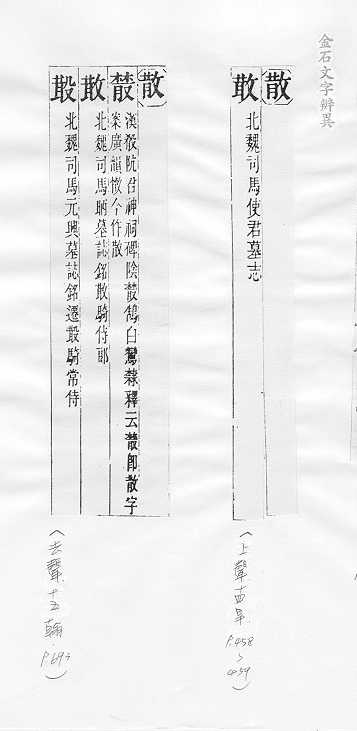 金石文字辨異
散
㪚 北魏司馬使君墓志
（上聲十四旱 P.458、459）
散
漢殽阬君神祠碑陰䉈鵠白鷺隸釋云䉈即散字
案廣韻㪚今作散
北魏司馬昞墓誌銘㪚騎侍郎
北魏司馬元興墓誌銘遷㪚騎常侍
（去聲十五翰 P.693）